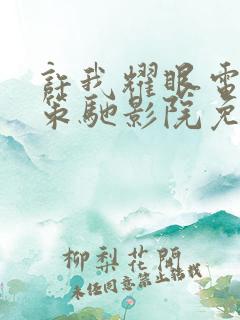 許我耀眼電
策馳影院免
柳梨花開
未經同意禁止轉載